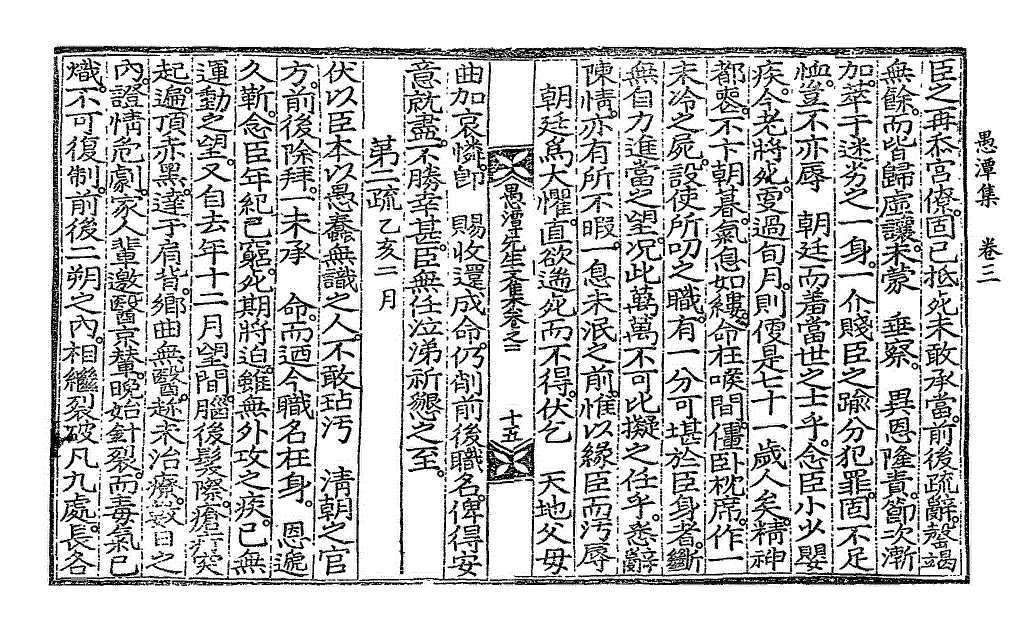 愚潭集 卷三
臣之再忝宮僚固已抵死未敢承當前後疏辭罄竭
無餘而皆歸虛讓未蒙 垂察 異恩隆責節次漸
加萃于迷劣之一身一介賤臣之踰分犯罪固不足
恤豈不亦辱 朝廷而羞當世之士乎念臣小少嬰
疾今老將死更過旬月則便是七十一歲人矣精神
都喪不卞朝暮氣息如縷命在喉間僵臥枕席作一
未冷之屍設使所叨之職有一分可堪於臣身者斷
無自力進當之望況此萬萬不可比擬之任乎悉辭
陳情亦有所不暇一息未泯之前惟以緣臣而汚辱
朝廷爲大懼直欲遄死而不得伏乞 天地父母
愚潭先生文集卷之三 十五
曲加哀憐卽 賜收還成命仍削前後職名俾得安
意就盡不勝幸甚臣無任泣涕祈懇之至
第二疏 乙亥二月
伏以臣本以愚蠢無識之人不敢玷汚 淸朝之官
方前後除拜一未承 命而迺今職名在身 恩遞
久靳念臣年紀已窮死期將迫雖無外攻之疾已無
運動之望又自去年十二月望間腦後髮際瘡疖突
起遍頂赤黑達于肩背鄕曲無醫趂未治療數日之
內證情危劇家人輩邀醫京輦晩始針裂而毒氣已
熾不可復制前後二朔之內相繼裂破凡九處長各